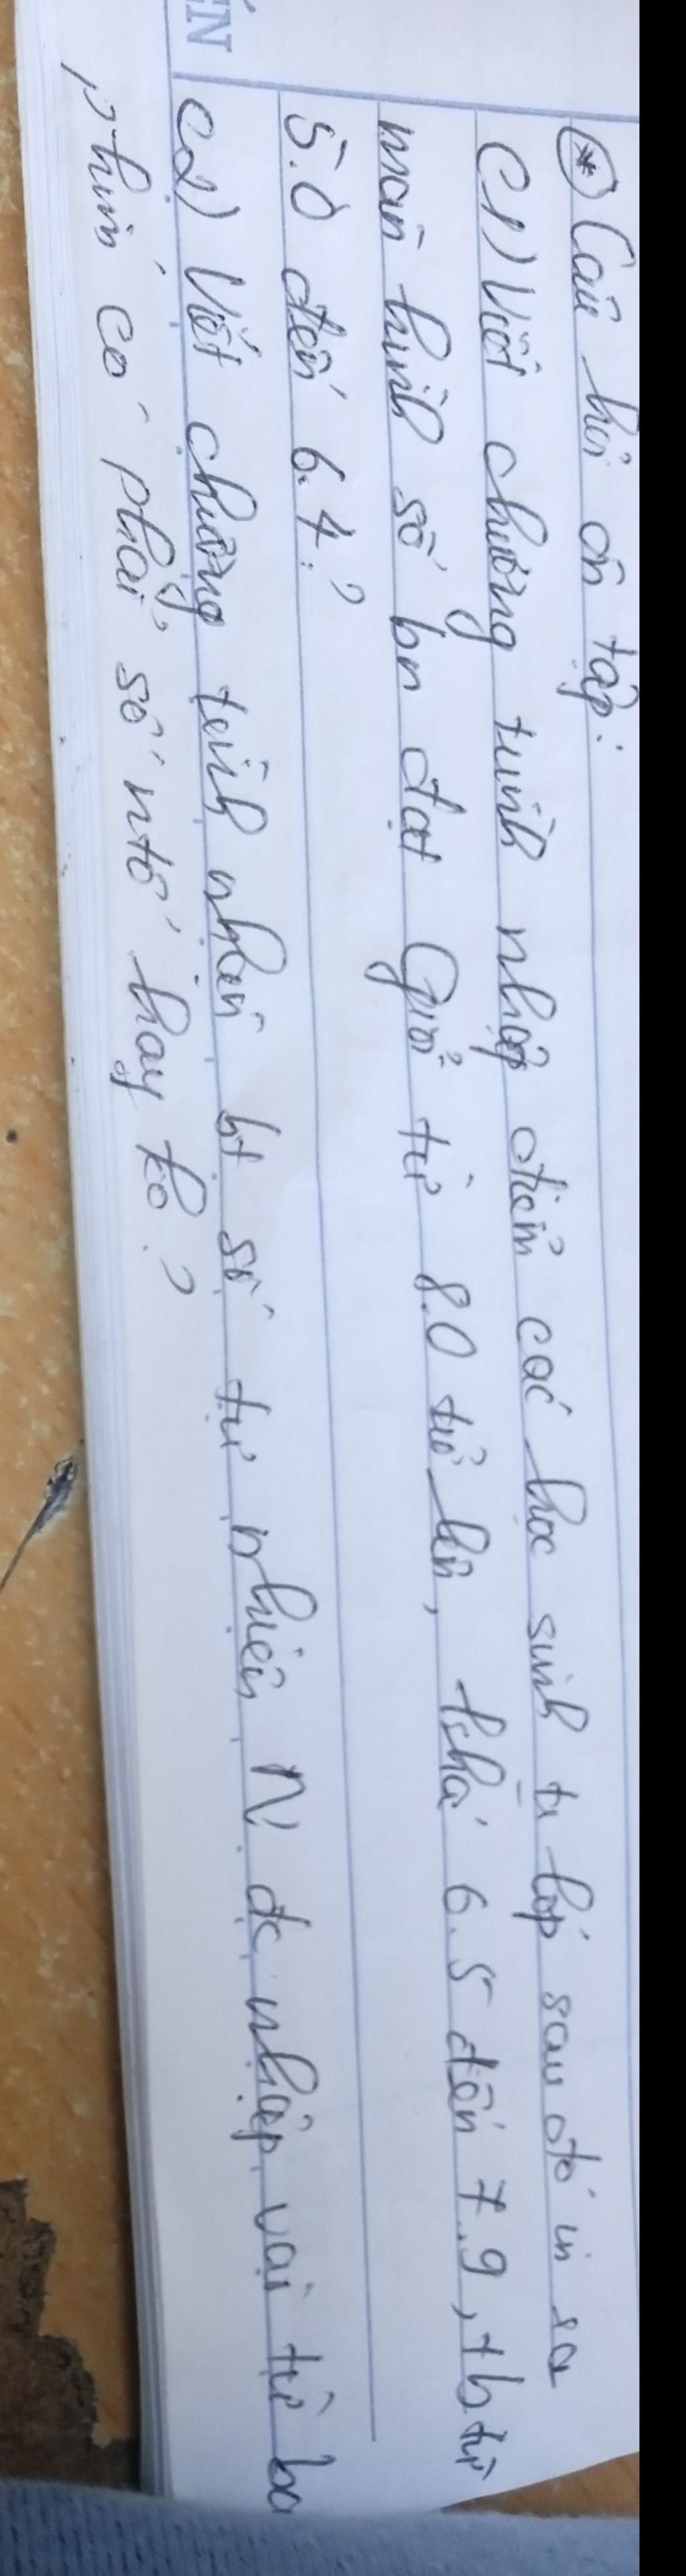 ÊN
(*) Câu hỏi ôn tập:
C1) Viết chương trình nhập điểm các học sinh tr lớp sau đó in ra
màn hình số bn đạt Giỏi từ 8.0 trở lên, khá 6.5 đến 7.9, tb từ
5.0 đến 6.4?
C2) Viết chương trình nhận bt số tự nhiên N đc nhập vài từ bà
phím có phải số ntố hay ko?